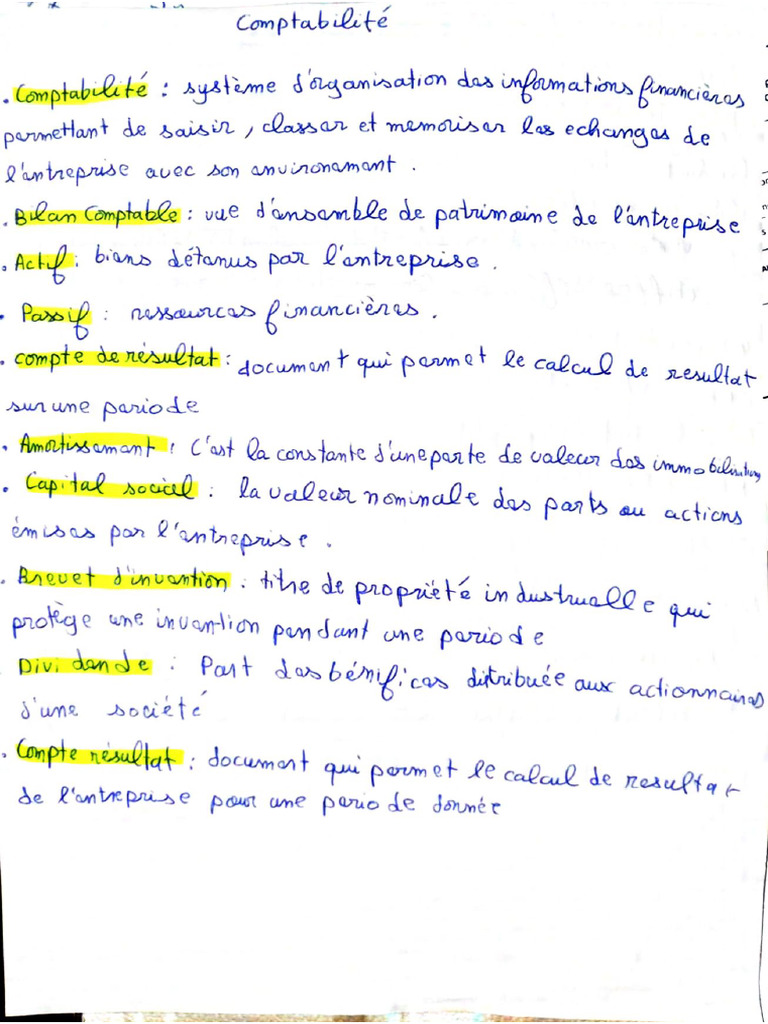 Comptabilité
. Comptabilité : système d'organisation des informations financières
permettant de saisir, classer et memoriser les echanges de
l'entreprise avec son environement .
. Bilan Comptable : vue d'ensemble de patrimoine de l'entreprise
. Actif : biens détenus par l'entreprise .
. Passif : ressources financières .
. compte de résultat : document qui permet le calcul de resultat
sur une periode
. Amortissement : C'est la constante d'une perte de valeur des immobilisations
. Capital social : la valeur nominale des parts ou actions
émises par l'entreprise .
. Brevet d'invention : titre de propriété industruelle qui
protège une invention pendant une periode
Dividende : Part des bénifices ditribuée aux actionnaires
d'une société
. Compte résultat : document qui permet le calcul de resultat
de l'entreprise pour une periode donnée